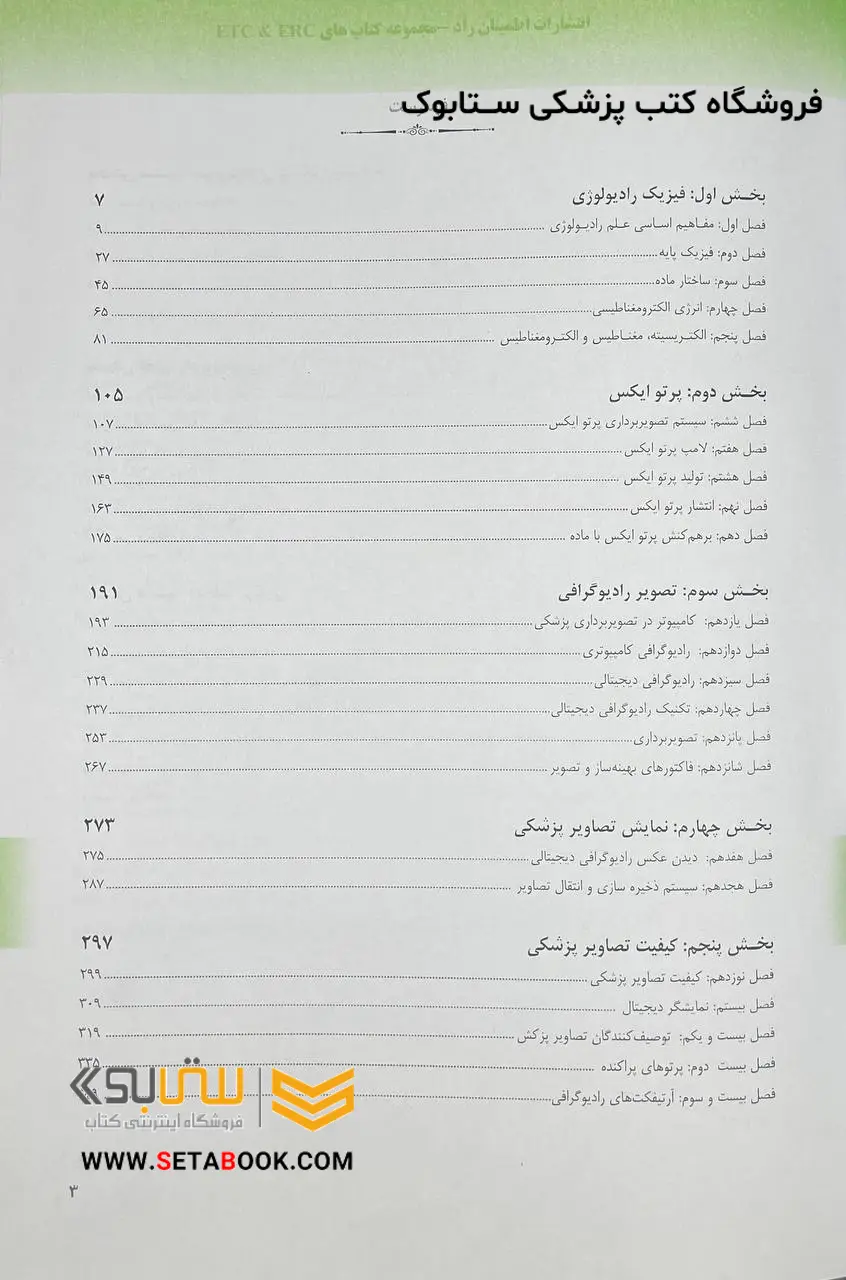 انتشارات اطمینان راد - مجموعه کتاب های ETC & ERC
فروشگاه کتب پزشکی ستابوک
بخش اول: فیزیک رادیولوژی ۷
فصل اول: مفاهیم اساسی علم رادیولوژی ۹
فصل دوم: فیزیک پایه ۲۷
فصل سوم: ساختار ماده ۴۵
فصل چهارم: انرژی الکترومغناطیسی ۶۵
فصل پنجم: الکتریسیته، مغناطیس و الکترومغناطیس ۸۱
بخش دوم: پرتو ایکس ۱۰۵
فصل ششم: سیستم تصویربرداری پرتو ایکس ۱۰۷
فصل هفتم: لامپ پرتو ایکس ۱۲۷
فصل هشتم: تولید پرتو ایکس ۱۴۹
فصل نهم: انتشار پرتو ایکس ۱۶۳
فصل دهم: برهم‌کنش پرتو ایکس با ماده ۱۷۵
بخش سوم: تصویر رادیوگرافی ۱۹۱
فصل یازدهم: کامپیوتر در تصویربرداری پزشکی ۱۹۳
فصل دوازدهم: رادیوگرافی کامپیوتری ۲۱۵
فصل سیزدهم: رادیوگرافی دیجیتالی ۲۲۹
فصل چهاردهم: تکنیک رادیوگرافی دیجیتالی ۲۳۷
فصل پانزدهم: تصویربرداری ۲۵۳
فصل شانزدهم: فاکتورهای بهینه‌ساز و تصویر ۲۶۷
بخش چهارم: نمایش تصاویر پزشکی ۲۷۳
فصل هفدهم: دیدن عکس رادیوگرافی دیجیتالی ۲۷۵
فصل هجدهم: سیستم ذخیره سازی و انتقال تصاویر ۲۸۷
بخش پنجم: کیفیت تصاویر پزشکی ۲۹۷
فصل نوزدهم: کیفیت تصاویر پزشکی ۲۹۹
فصل بیستم: نمایشگر دیجیتال ۳۰۹
فصل بیست و یکم: توصیف‌کنندگان تصاویر پزکش ۳۱۹
فصل بیست دوم: پرتوهای پراکنده ۳۳۵
فصل بیست و سوم: آرتیفکت‌های رادیوگرافی
ستابوک
فروشگاه اینترنتی کتاب
WWW.SETABOOK.COM
۳